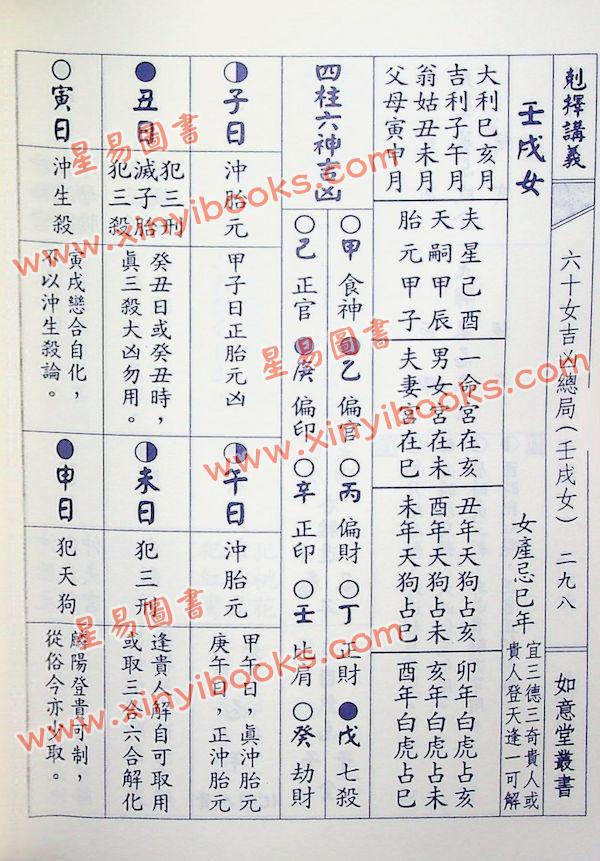 剋擇講義
六十女吉凶總局(壬戌女)
二九八
如意堂叢書
壬戌女
女產忌巳年
宜三德三奇貴人或
貴人登天逢一可解
大利巳亥月
吉利子午月
翁姑丑未月
父母寅申月
夫星己酉
天嗣甲辰
胎元甲子
一命宮在亥
男女宮在未
夫妻宮在巳
丑年天狗占亥
酉年天狗占未
未年天狗占巳
卯年白虎占亥
亥年白虎占未
酉年白虎占巳
四柱六神吉凶
○甲食神 乙偏官 ○丙偏財 ○丁正財 ●戊七殺
○己正官 庚偏印 ○辛正印 ○壬比肩 ○癸劫財
◑子日
沖胎元
甲子日正胎元凶
◑午日
沖胎元
甲午日，真沖胎元
庚午日，正沖胎元
●丑日
犯三刑
滅子胎
犯三殺
癸丑日或癸丑時，
真三殺大凶勿用。
◑未日
犯三刑
逢貴人解自可取用
或取三合六合解化
○寅日
沖生殺
寅戌戀合自化，
不以沖生殺論。
●申日
犯天狗
麟陽登貴可制，
從俗今亦少取。
星易圖書
www.xinyibooks.com
星易圖書
www.xinyibooks.com
星易圖書
www.xinyibooks.com